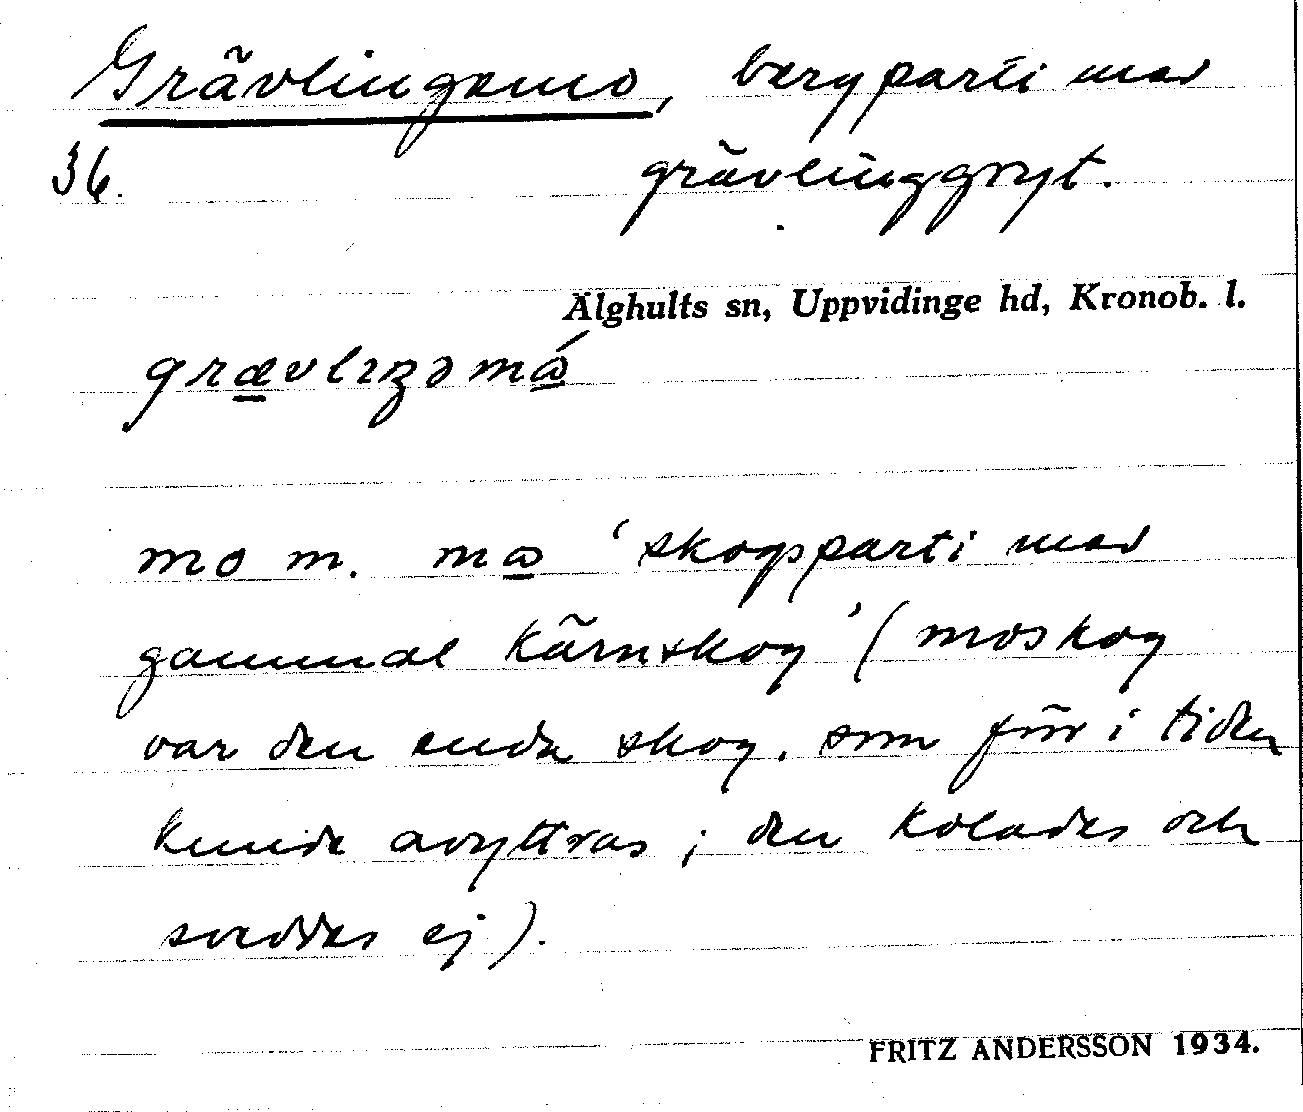 Grävlingemo, bergparti med
36. grävlinggryt.
Älghults sn, Uppvidinge hd, Kronob. l.
grævlıŋəmɷ́
mo m. mɷ ‘skogsparti med
gammal kärnskog’ (moskog
var den enda skog, som förr i tiden
kunde avyttras; den kolades och
sveddes ej).
FRITZ ANDERSSON 1934.